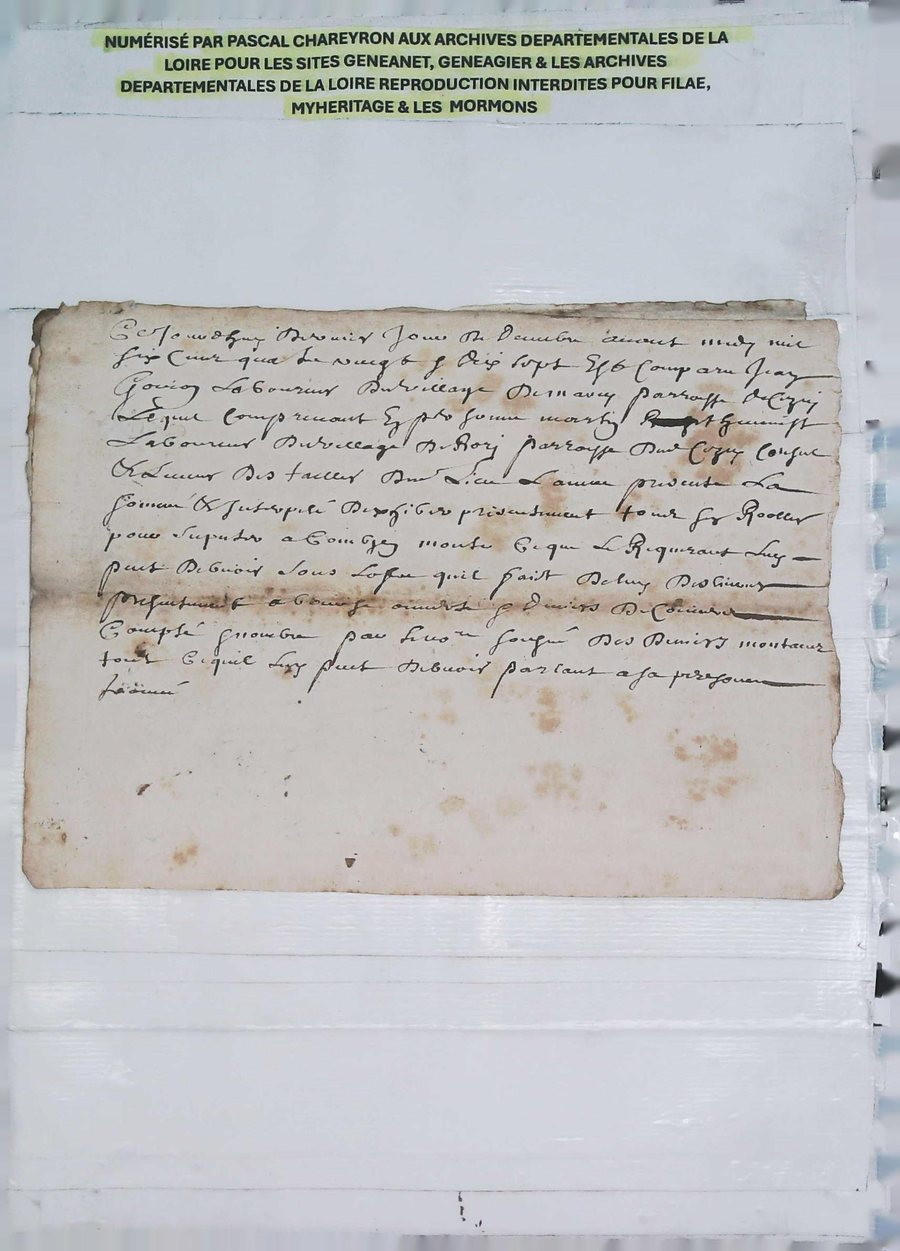 NUMÉRISÉ PAR PASCAL CHAREYRON AUX ARCHIVES DEPARTEMENTALES DE LA
LOIRE POUR LES SITES GENEANET, GENEAGIER & LES ARCHIVES
DEPARTEMENTALES DE LA LOIRE REPRODUCTION INTERDITES POUR FILAE,
MYHERITAGE & LES MORMONS
Ce Jourdhuy dernier Jour de decembre avant midy mil
six cens quatre vingt dix sept Est Comparu Jean
Laboureur du village de parroisse de
Lequel comprenant En personne martin
Laboureur du village de parroisse dud Consul
& Leveur des tailles dud Lieu L'année presente La
sommé & Interpelé d'exhiber presentement tous ses Roolles
pour supputer a Combien monte Ce que Le Requerant Luy
peut debvoir sous Loffre quil faict de luy deslivrer
presentement a bourse ouverte & deniers
Compté & nombré par des deniers montant
tout Ce quil Luy peut debvoir parlant a sa personne